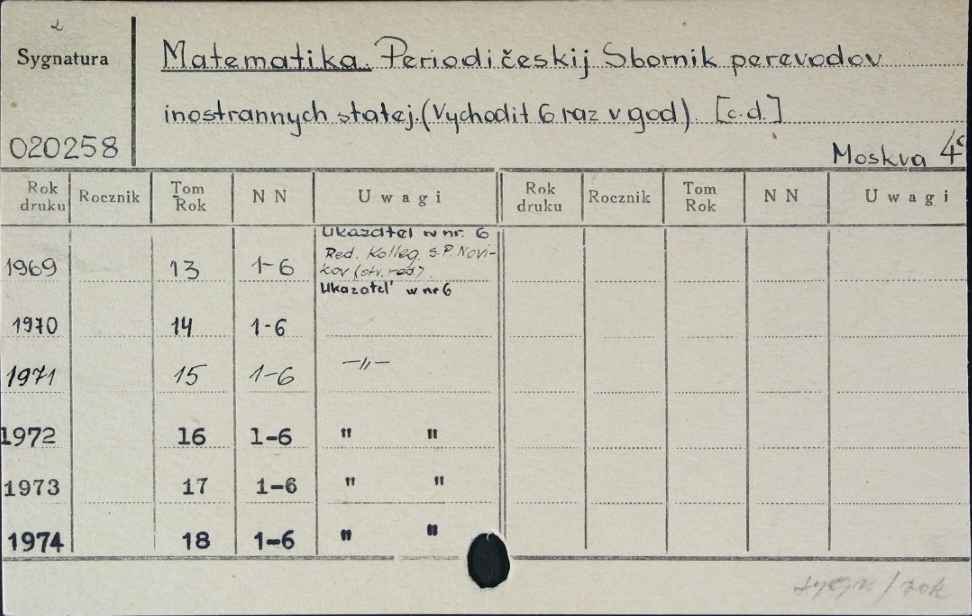 Sygnatura
020258
Matematika. Periodičeskij Sbornik perevodov
inostrannych statej. (Vychodit 6 raz v god) [c.d.]
Moskva 4°
Rok druku Rocznik Tom Rok N N Uwagi Rok druku Rocznik Tom Rok N N Uwagi
Ukazatel w nr. 6
1969 13 1-6 Red. Kolleg. S.P. Novi-
kov (otv. red).
Ukazatel' w nr 6
1970 14 1-6
1971 15 1-6 —"—
1972 16 1-6 " "
1973 17 1-6 " "
1974 18 1-6 " "
sygn / rok